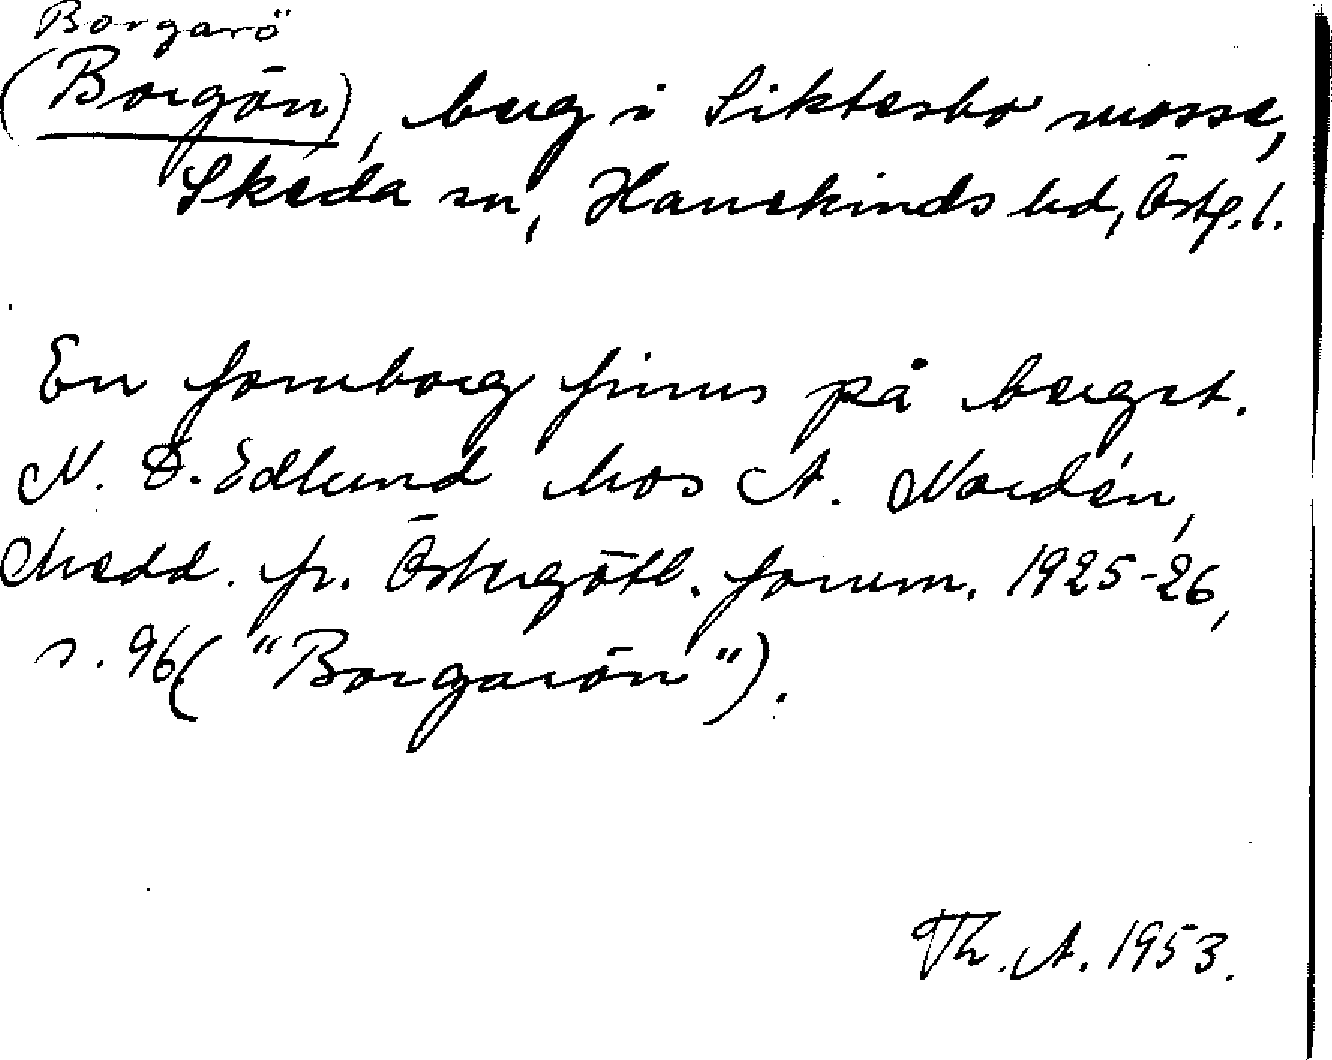 Borgarö
(Borgön), berg i Siktesbo mosse,
Skeda sn, Hanekinds hd, Östg. l.
En fornborg finns på berget.
N. D. Edlund hos A. Nordén,
Medd. fr. Östergötl. fornm. 1925-26,
s. 96 ("Borgarön").
Th. A. 1953.